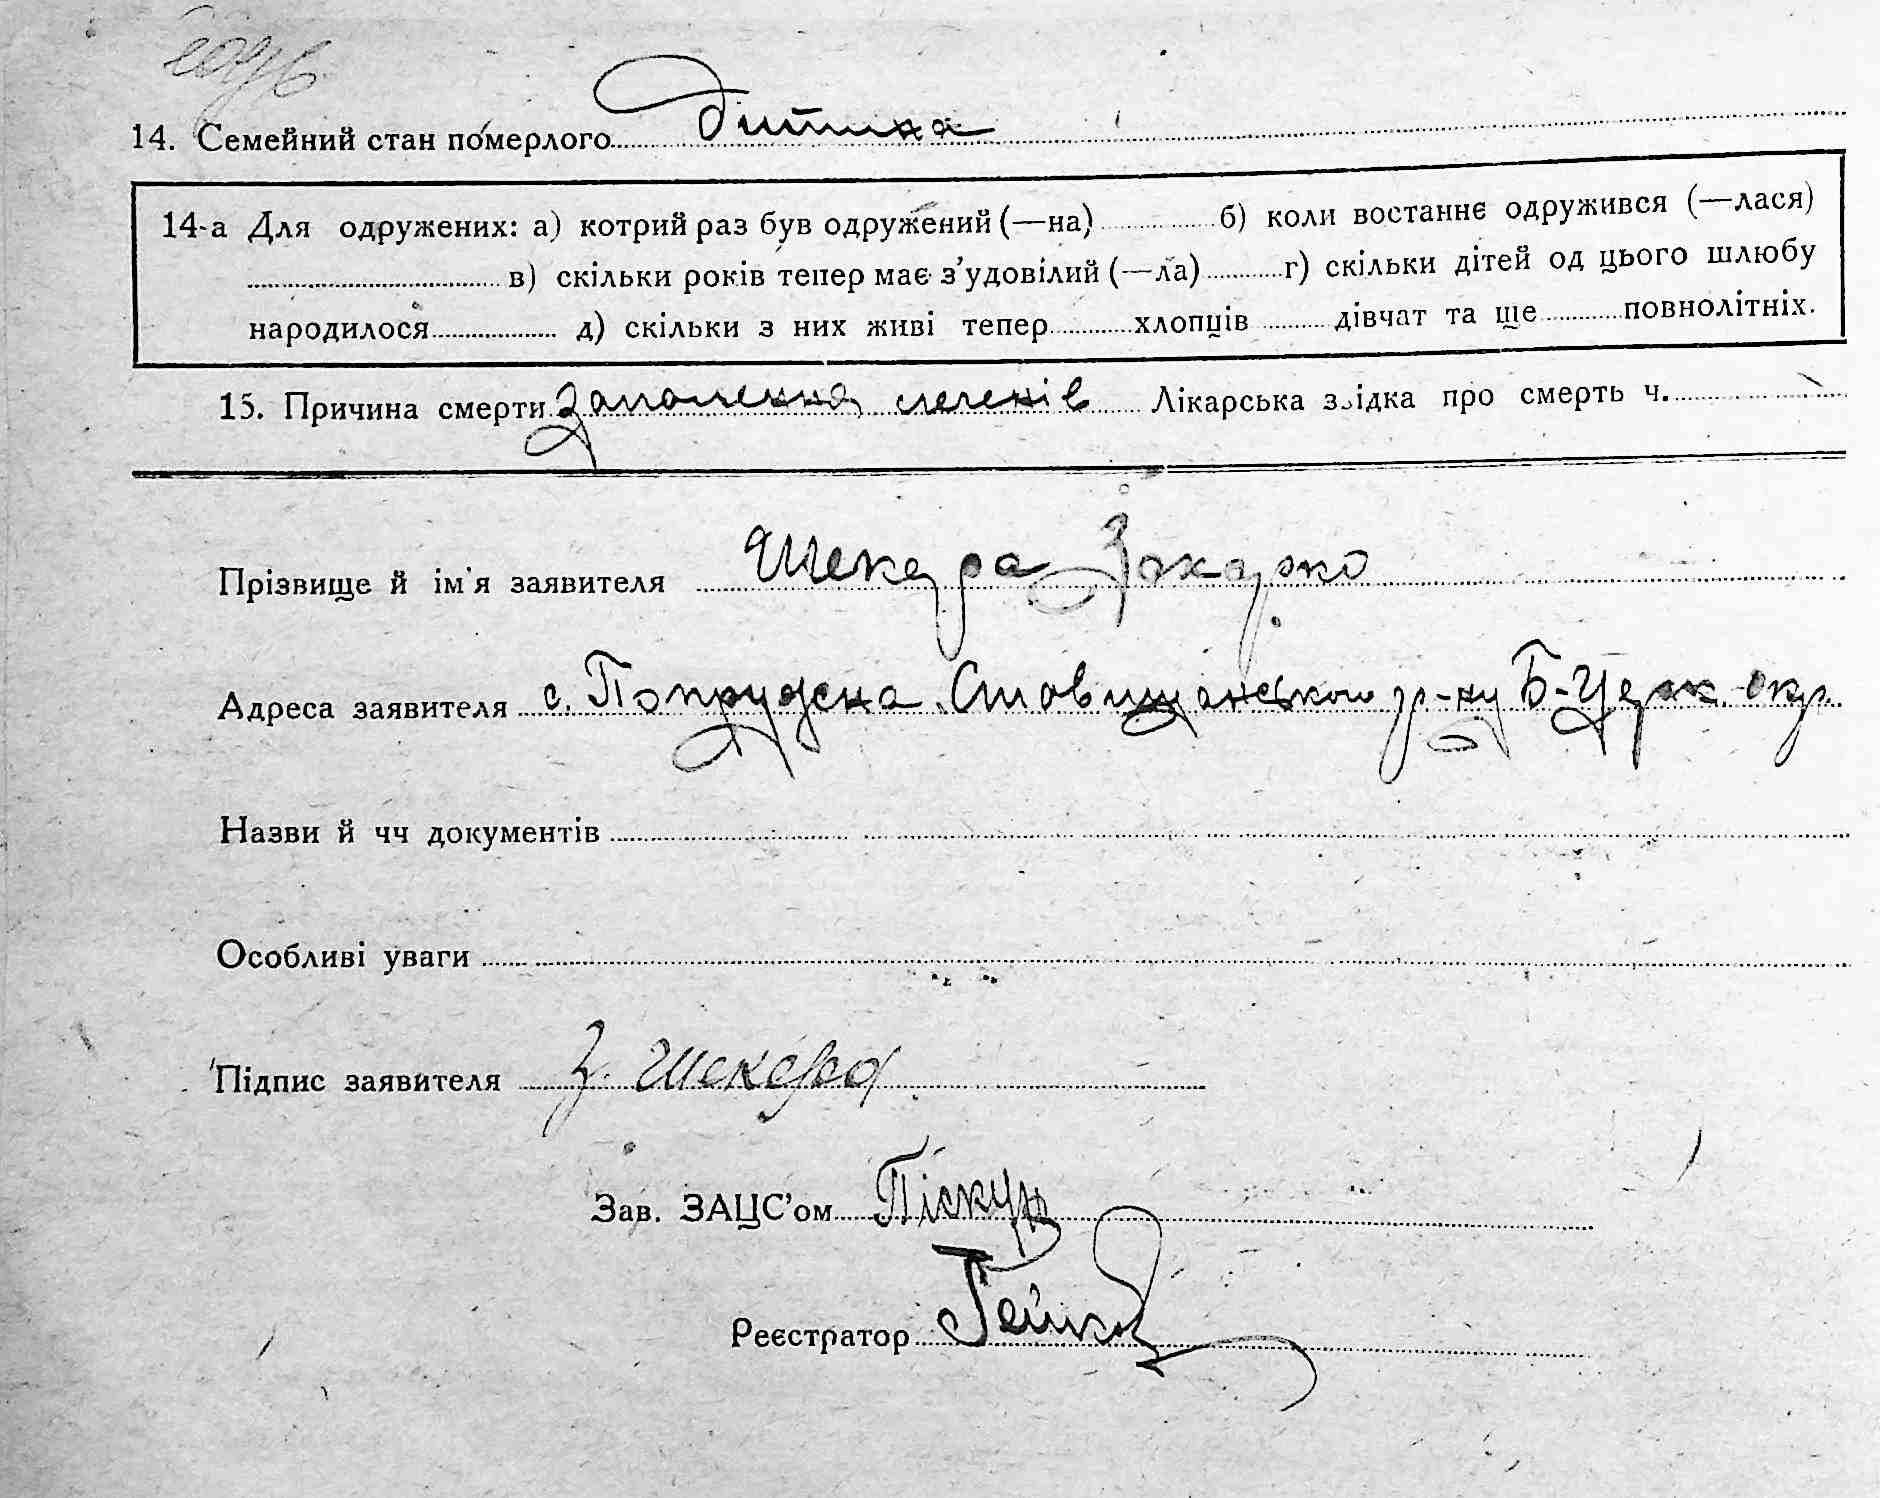 14. Семейний стан померлого дитина
14-а Для одружених: а) котрий раз був одружений (—на) б) коли востаннє одружився (—лася)
в) скільки років тепер має з’удовілий (—ла) г) скільки дітей од цього шлюбу
народилося д) скільки з них живі тепер хлопців дівчат та ще повнолітніх.
15. Причина смерти запалення легенів Лікарська звідка про смерть ч.
Прізвище й ім'я заявителя Шекера Захарко
Адреса заявителя с. Попружна Ставищанського р-ну Б-Церк. окр.
Назви й чч документів
Особливі уваги
Підпис заявителя З. Шекера
Зав. ЗАЦС’ом Піскун
Реєстратор Гейко